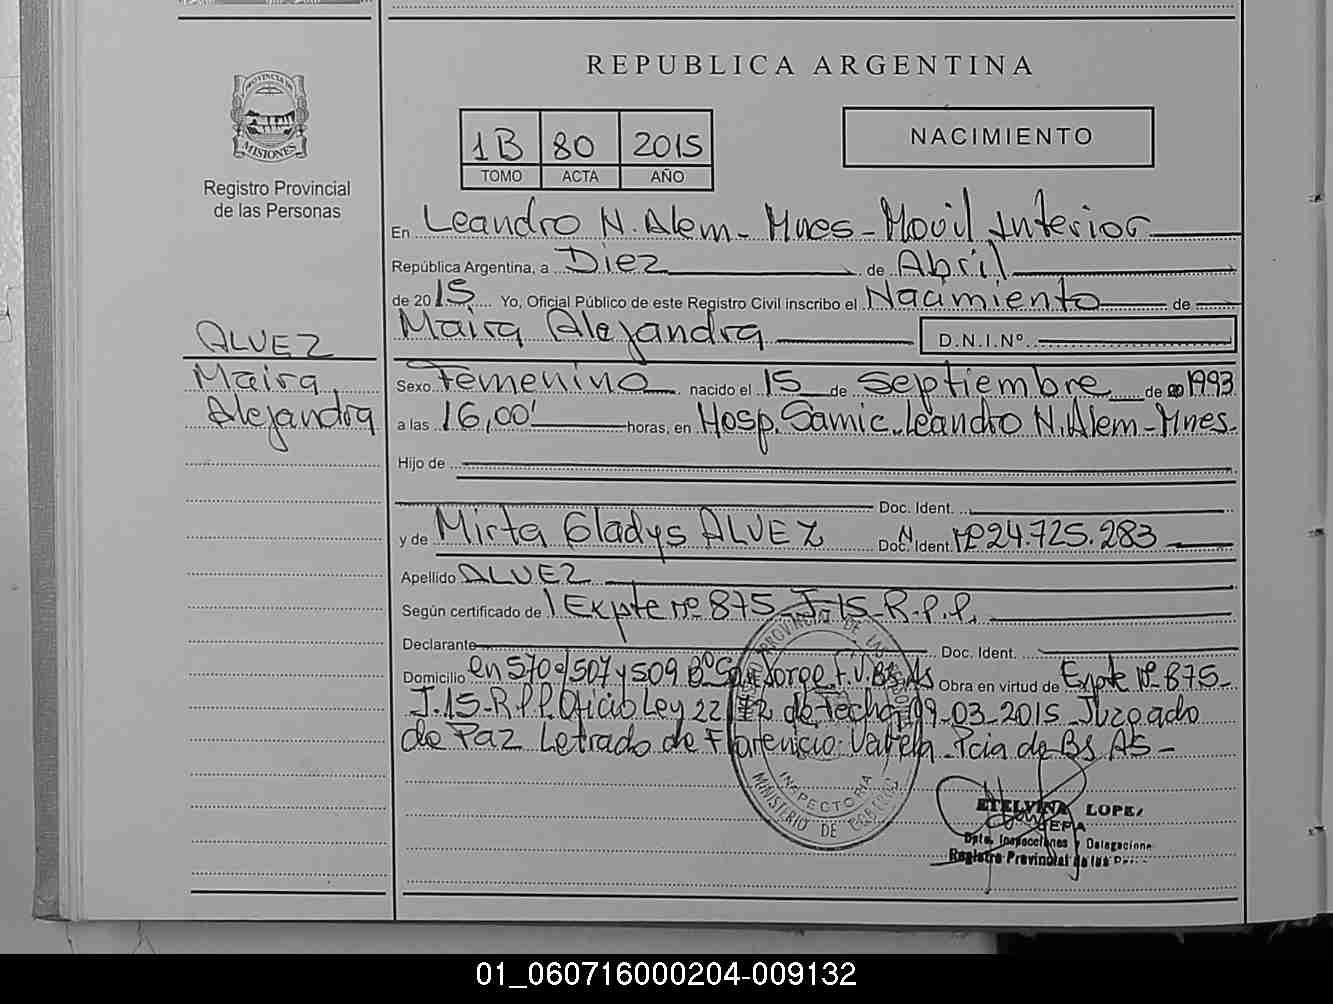 REPUBLICA ARGENTINA
PROVINCIA DE
MISIONES
Registro Provincial
de las Personas
1B 80 2015
TOMO ACTA AÑO
NACIMIENTO
En Leandro N. Alem - Mnes - Movil Interior
República Argentina, a Diez de Abril
de 2015 Yo, Oficial Público de este Registro Civil inscribo el Nacimiento de
Maira Alejandra D.N.I.Nº.
ALVEZ
Maira
Alejandra
Sexo Femenino nacido el 15 de Septiembre de 1993
a las 16,00' horas, en Hosp. Samic. Leandro N. Alem - Mnes.
Hijo de
Doc. Ident.
y de Mirta Gladys ALVEZ Doc. Ident. Nº 24.725.283
Apellido ALVEZ
Según certificado de Expte nº 875 - J-15-R.P.P.
Declarante Doc. Ident.
Domicilio en 570 e/507 y 509 Bº San Jorge F.V. Bs As Obra en virtud de Expte nº 875-
J.15-R.P.P. Oficio Ley 22172 de Fecha 09-03-2015 - Juzgado
de Paz Letrado de Florencio Varela - Pcia de Bs As -
INSPECTORIA
MINISTERIO DE GOBIERNO
ETELVINA LOPEZ
JEFA
Dpto. Inspecciones y Delegaciones
Registro Provincial de las
01_060716000204-009132